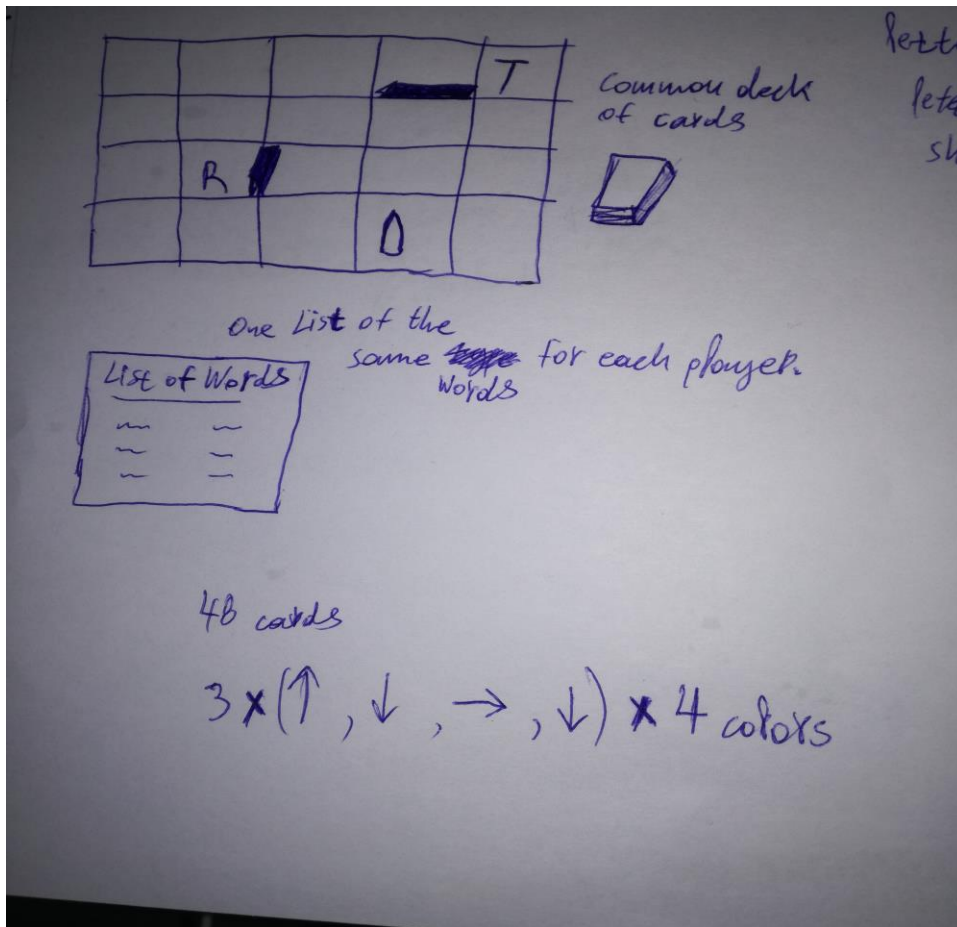 T
common deck
of cards
R
One List of the
same words for each player.
List of Words
48 cards
3 x (↑, ↓, →, ↓) x 4 colors